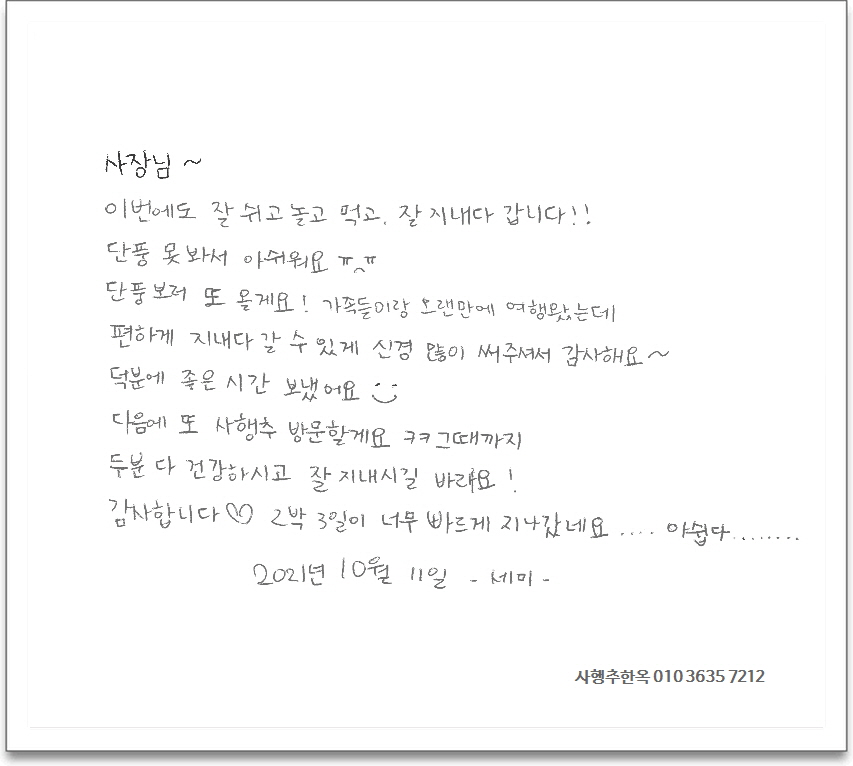 사장님 ~
이번에도 잘 쉬고 놀고 먹고, 잘 지내다 갑니다!!
단풍 못봐서 아쉬워요 ㅠ^ㅠ
단풍보러 또 올게요! 가족들이랑 오랜만에 여행왔는데
편하게 지내다 갈 수 있게 신경 많이 써주셔서 감사해요~
덕분에 좋은 시간 보냈어요 :)
다음에 또 사행추 방문할게요 ㅋㅋ그때까지
두분 다 건강하시고 잘 지내시길 바라요!
감사합니다♡ 2박 3일이 너무 빠르게 지나갔네요 .... 아쉽다........
2021년 10월 11일 - 세미 -
사행추한옥 010 3635 7212